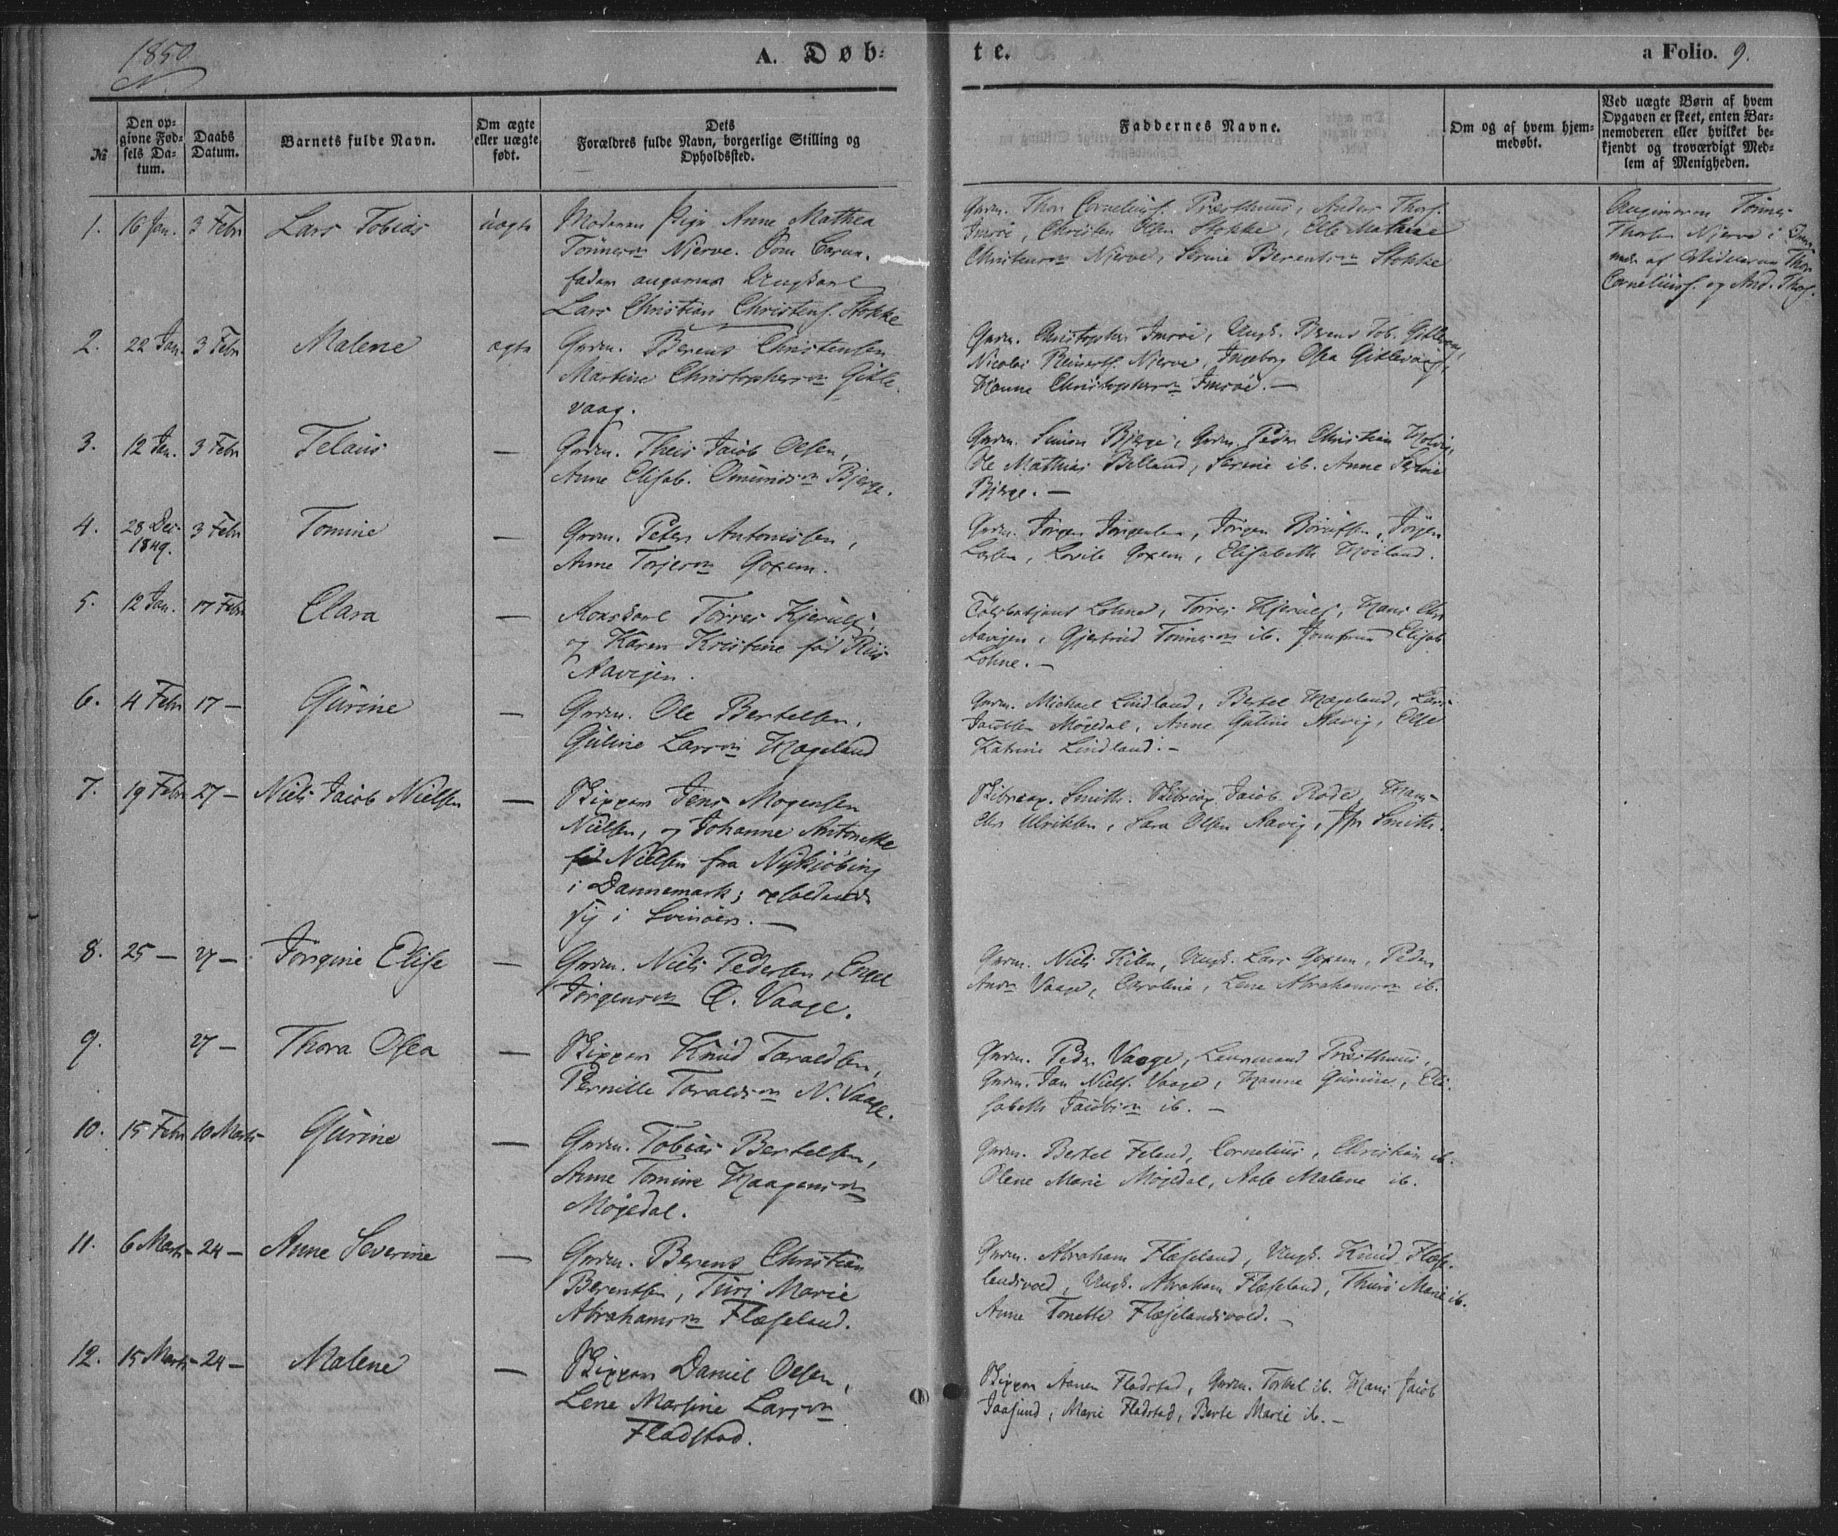 1850
A. Døb-
te.
a Folio. 9.
№
Den op-
givne Fød-
sels Da-
tum.
Daabs
Datum.
Barnets fulde Navn.
Om ægte
eller uægte
født.
Dets
Forældres fulde Navn, borgerlige Stilling og
Opholdssted.
Faddernes Navne.
Om og af hvem hjem-
medøbt.
Ved uægte Børn af hvem
Opgaven er skeet, enten Bar-
nemoderen eller hvilket be-
kjendt og troværdigt Med-
lem af Menigheden.
1. 16 Jan. 3 Febr Lars Tobias uægte
Moderen Pige Anne Mathea
Tønnesen Njerve. Som Barne-
fader angives Ungkarl
Lars Christian Christens. Stokke
Grdm. Thor Corneliuss. Præsthuus, Anders Thors.
Imsøe, Christen Olsen Stokke, Mathea
Christensen Njerve, Serine Berentsen Stokke
Angiveren Tønnes
Thorsen Njerve i
af Vidnerne Thor
Corneliuss. og And. Thors.
2. 22 Jan 3 Febr Malene ægte
Grdm. Berent Christensen
Martine Christophersen Gitle-
vaag.
Grdm. Christopher Imsøe, Ungk. Berent Tob. Gitlevaag,
Nicolai Reinerts. Njerve, Ingeborg Osea Gitlevaag,
Hanne Christophersen Imsøe. —
3. 12 Jan. 3 Febr Telaus —
Grdm. Theis Jacob Olsen,
Anne Elisab. Omundsen Bjerge.
Grdm. Simon Bjerge, Grdm. Peder Christian
Ole Mathias Belland, Serine ib. Anne Serine
Bjerge. —
4. 28 Dec. 1849. 3 Febr Tomine —
Grdm. Peter Antonisen,
Anne Torjesen Goxem.
Grdm. Jørgen Jørgensen, Jørgen, Jørgen
Larsen, Lovise Goxem, Elisabeth Høiland.
5. 12 Jan. 17 Febr Clara —
Tørres Kjerulf,
og Karen Kristine fød Riis
Aavigen.
Toldbetjent Lohne, Tørres Kjerulf, Hans Chr.
Aavigen, Gjertrud Tønnesen ib. Jomfrue Elisab.
Lohne. —
6. 4 Febr 17 — Gurine —
Grdm. Ole Bertelsen,
Guline Larsen Hageland
Grdm. Michael Lindland, Bertel Hageland, Lars
Jacobsen Møgedal, Anne Guline Aavig, Else
Katrine Lindland. —
7. 19 Febr 27 — Niels Jacob Nielsen —
Skipper Jens Mogensen
Nielsen, og Johanne Antonette
fød Nielsen fra Nykjøbing
i Dannemark; opholdende
sig i Svinøen. —
Skibscap. Smith. Skibscap. Jacob Rode, Hans
Chr. Ulriksen, Sara Olsen Aavig, Jfr. Smith.
8. 25 — 27 — Jørgine Elise —
Grdm. Niels Pedersen, Engel
Jørgensen O. Vaage.
Grdm. Niels Kilen, Ungk. Lars Goxem, Peder
Andr. Vaage, Caroline, Lene Abrahamsen ib.
9. 27 — Thora Osea —
Skipper Knud Taraldsen,
Pernille Taraldsen N. Vaage.
Grdm. Peder Vaage, Præsthuus,
Grdm. Jan Niels. Vaage, Hanne Gurine, Eli-
sabeth Jacobsen ib. —
10. 15 Febr 10 Marts Gurine —
Grdm. Tobias Bertelsen,
Anne Tomine Haagensen
Møgedal.
Grdm. Bertel Feland, Cornelius, Christian ib.
Olene Marie Møgedal, Aase Malene ib.
11. 6 Marts 24 — Anne Severine —
Grdm. Berent Christian
Berentsen, Turi Marie
Abrahamsen Flæseland.
Grdm. Abraham Flæseland, Ungk. Knud Flæse-
landsvold, Ungk. Abraham Flæseland, Thuri Marie ib.
Anne Tonette Flæselandsvold. —
12. 15 Marts 24 — Malene —
Skipper Daniel Olsen,
Lene Martine Larsen
Fladstad.
Skipper Aanen Fladstad, Grdm. Torkel ib. Hans Jacob
Taasund, Marie Fladstad, Berte Marie ib. —